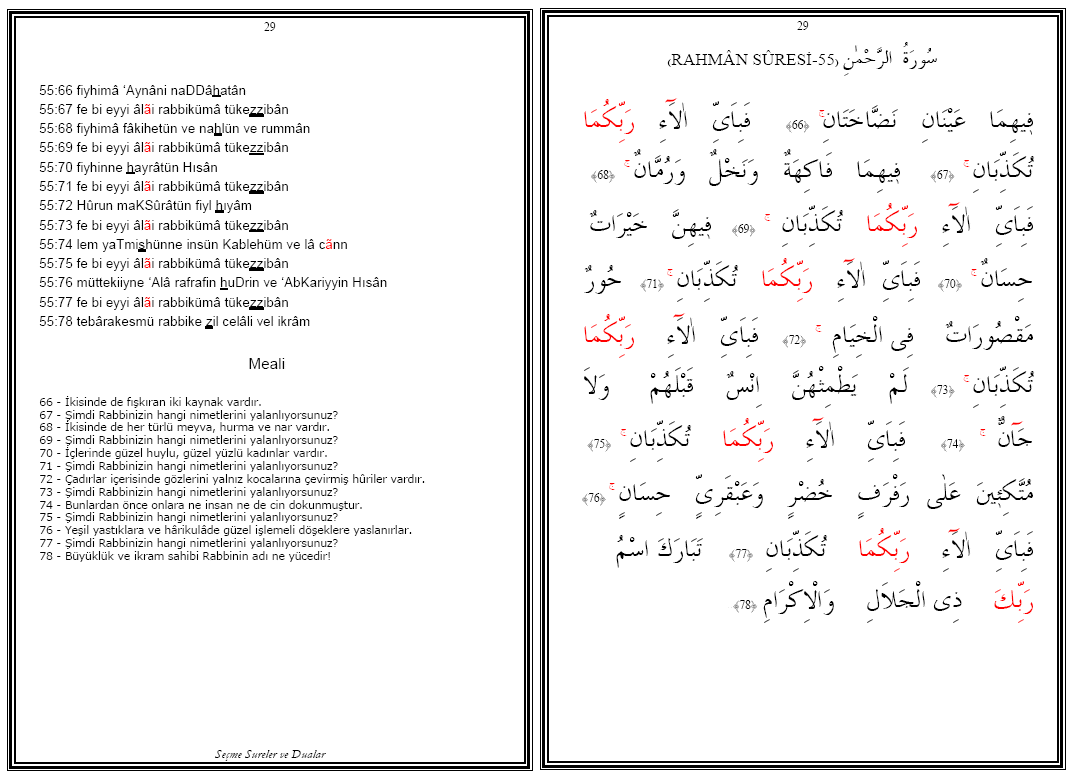 29
55:66 fiyhimâ ‘Aynâni naDDâhatân
55:67 fe bi eyyi âlãi rabbikümâ tükezzibân
55:68 fiyhimâ fâkihetün ve nahlün ve rummân
55:69 fe bi eyyi âlãi rabbikümâ tükezzibân
55:70 fiyhinne hayrâtün Hısân
55:71 fe bi eyyi âlãi rabbikümâ tükezzibân
55:72 Hûrun maKSûrâtün fiyl hıyâm
55:73 fe bi eyyi âlãi rabbikümâ tükezzibân
55:74 lem yaTmishünne insün Kablehüm ve lâ cãnn
55:75 fe bi eyyi âlãi rabbikümâ tükezzibân
55:76 müttekiiyne ‘Alâ rafrafin huDrin ve ‘AbKariyyin Hısân
55:77 fe bi eyyi âlãi rabbikümâ tükezzibân
55:78 tebârakesmü rabbike zil celâli vel ikrâm
Meali
66 - İkisinde de fışkıran iki kaynak vardır.
67 - Şimdi Rabbinizin hangi nimetlerini yalanlıyorsunuz?
68 - İkisinde de her türlü meyva, hurma ve nar vardır.
69 - Şimdi Rabbinizin hangi nimetlerini yalanlıyorsunuz?
70 - İçlerinde güzel huylu, güzel yüzlü kadınlar vardır.
71 - Şimdi Rabbinizin hangi nimetlerini yalanlıyorsunuz?
72 - Çadırlar içerisinde gözlerini yalnız kocalarına çevirmiş hûriler vardır.
73 - Şimdi Rabbinizin hangi nimetlerini yalanlıyorsunuz?
74 - Bunlardan önce onlara ne insan ne de cin dokunmuştur.
75 - Şimdi Rabbinizin hangi nimetlerini yalanlıyorsunuz?
76 - Yeşil yastıklara ve hârikulâde güzel işlemeli döşeklere yaslanırlar.
77 - Şimdi Rabbinizin hangi nimetlerini yalanlıyorsunuz?
78 - Büyüklük ve ikram sahibi Rabbinin adı ne yücedir!
Seçme Sureler ve Dualar
29
سُورَةُ الرَّحْمٰنِ (RAHMÂN SÛRESİ-55)
فٖيهِمَا عَيْنَانِ نَضَّاخَتَانِۚ ﴿66﴾ فَبِاَىِّ اٰلَٓاءِ رَبِّكُمَا
تُكَذِّبَانِۚ ﴿67﴾ فٖيهِمَا فَاكِهَةٌ وَنَخْلٌ وَرُمَّانٌۚ ﴿68﴾
فَبِاَىِّ اٰلَٓاءِ رَبِّكُمَا تُكَذِّبَانِۚ ﴿69﴾ فٖيهِنَّ خَيْرَاتٌ
حِسَانٌۚ ﴿70﴾ فَبِاَىِّ اٰلَٓاءِ رَبِّكُمَا تُكَذِّبَانِۚ ﴿71﴾ حُورٌ
مَقْصُورَاتٌ فِى الْخِيَامِۚ ﴿72﴾ فَبِاَىِّ اٰلَٓاءِ رَبِّكُمَا
تُكَذِّبَانِۚ ﴿73﴾ لَمْ يَطْمِثْهُنَّ اِنْسٌ قَبْلَهُمْ وَلَا
جَٓانٌّۚ ﴿74﴾ فَبِاَىِّ اٰلَٓاءِ رَبِّكُمَا تُكَذِّبَانِۚ ﴿75﴾
مُتَّكِپٖينَ عَلٰى رَفْرَفٍ خُضْرٍ وَعَبْقَرِىٍّ حِسَانٍۚ ﴿76﴾
فَبِاَىِّ اٰلَٓاءِ رَبِّكُمَا تُكَذِّبَانِ ﴿77﴾ تَبَارَكَ اسْمُ
رَبِّكَ ذِى الْجَلَالِ وَالْاِكْرَامِ ﴿78﴾